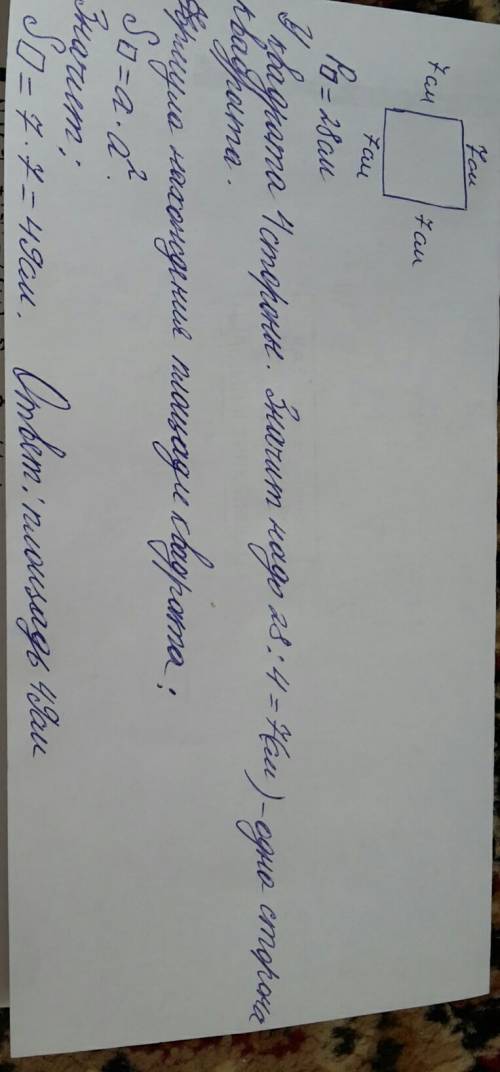 7см
7см
7см
7см
P□ = 28см
У квадрата 4 стороны. Значит надо 28:4=7(см) - одно сторона
квадрата.
Формула нахождения площади квадрата:
S□ = a · a².
Значит:
S□ = 7 · 7 = 49см. Ответ: площадь 49см